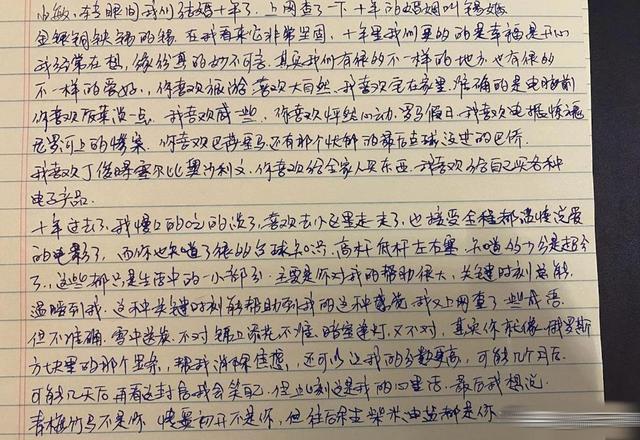 小敏，本命眼间我们结婚十年了，上网查了一下十年的婚姻叫锡婚
金银铜铁锡的锡。在我看来它非常坚固，十年里我们更多的是幸福是开心
我经常在想，缘份真的妙不可言。其实我们有很多不一样的地方，也有很多
不一样的爱好，你喜欢旅游喜欢大自然，我喜欢宅在家里，准确的是电脑前
你喜欢饭菜淡一点，我喜欢咸一些，你喜欢怦然心动，罗马假日，我喜欢电锯惊魂
尼罗河上的惨案，你喜欢巴蒂罗马还有那个忧郁的最后点球没进的巴乔
我喜欢丁俊晖塞尔比奥沙利文，你喜欢给全家人买东西，我喜欢给自己买各种
电子产品。
十年过去了，我慢慢的吃的淡了，喜欢去小区里走走了，也接受全程都谈情说爱
的电影了，而你也知道了很多台球知识，高杆低杆左右塞，知道的
了，这些都只是生活中的一小部分，主要是你对我的帮助很大，关键时刻总能
温暖到我，这种关键时刻能帮助到我的这种感觉，我又上网查了些成语
但不准确，雪中送炭，不对，锦上添花，不准，暗室逢灯，又不对，其实你就像俄罗斯
方块里的那个竖条，帮我消除焦虑，还可以让我的分数更高，可能几个月后
可能几天后再看这封信我会笑自己，但此刻这是我的心里话，最后我想说
青梅竹马不是你 情窦初开不是你，但往后余生柴米油盐都是你